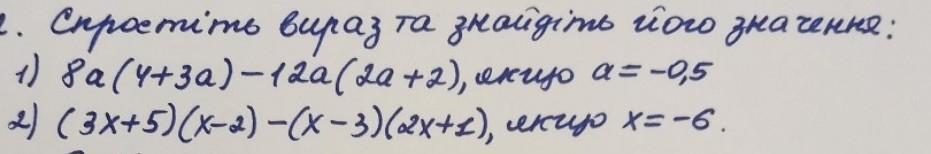 2. Спростіть вираз та знайдіть його значення:
1) 8a(4+3a)-12a(2a+2), якщо a=-0,5
2) (3x+5)(x-2)-(x-3)(2x+1), якщо x=-6.